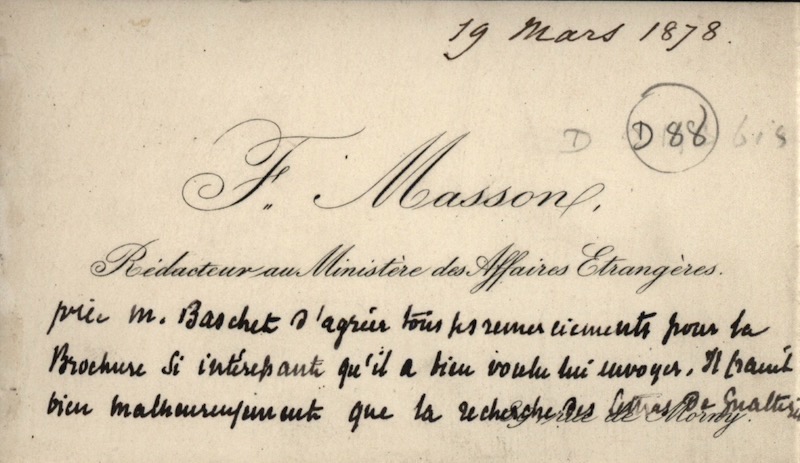 19 Mars 1878.
D 88 bis
F. Masson,
Rédacteur au Ministère des Affaires Etrangères.
prie M. Baschet d'agréer tous ses remerciements pour la
Brochure si intéressante qu'il a bien voulu lui envoyer. Il craint
bien malheureusement que la recherche des lettres de
rue de Morny.